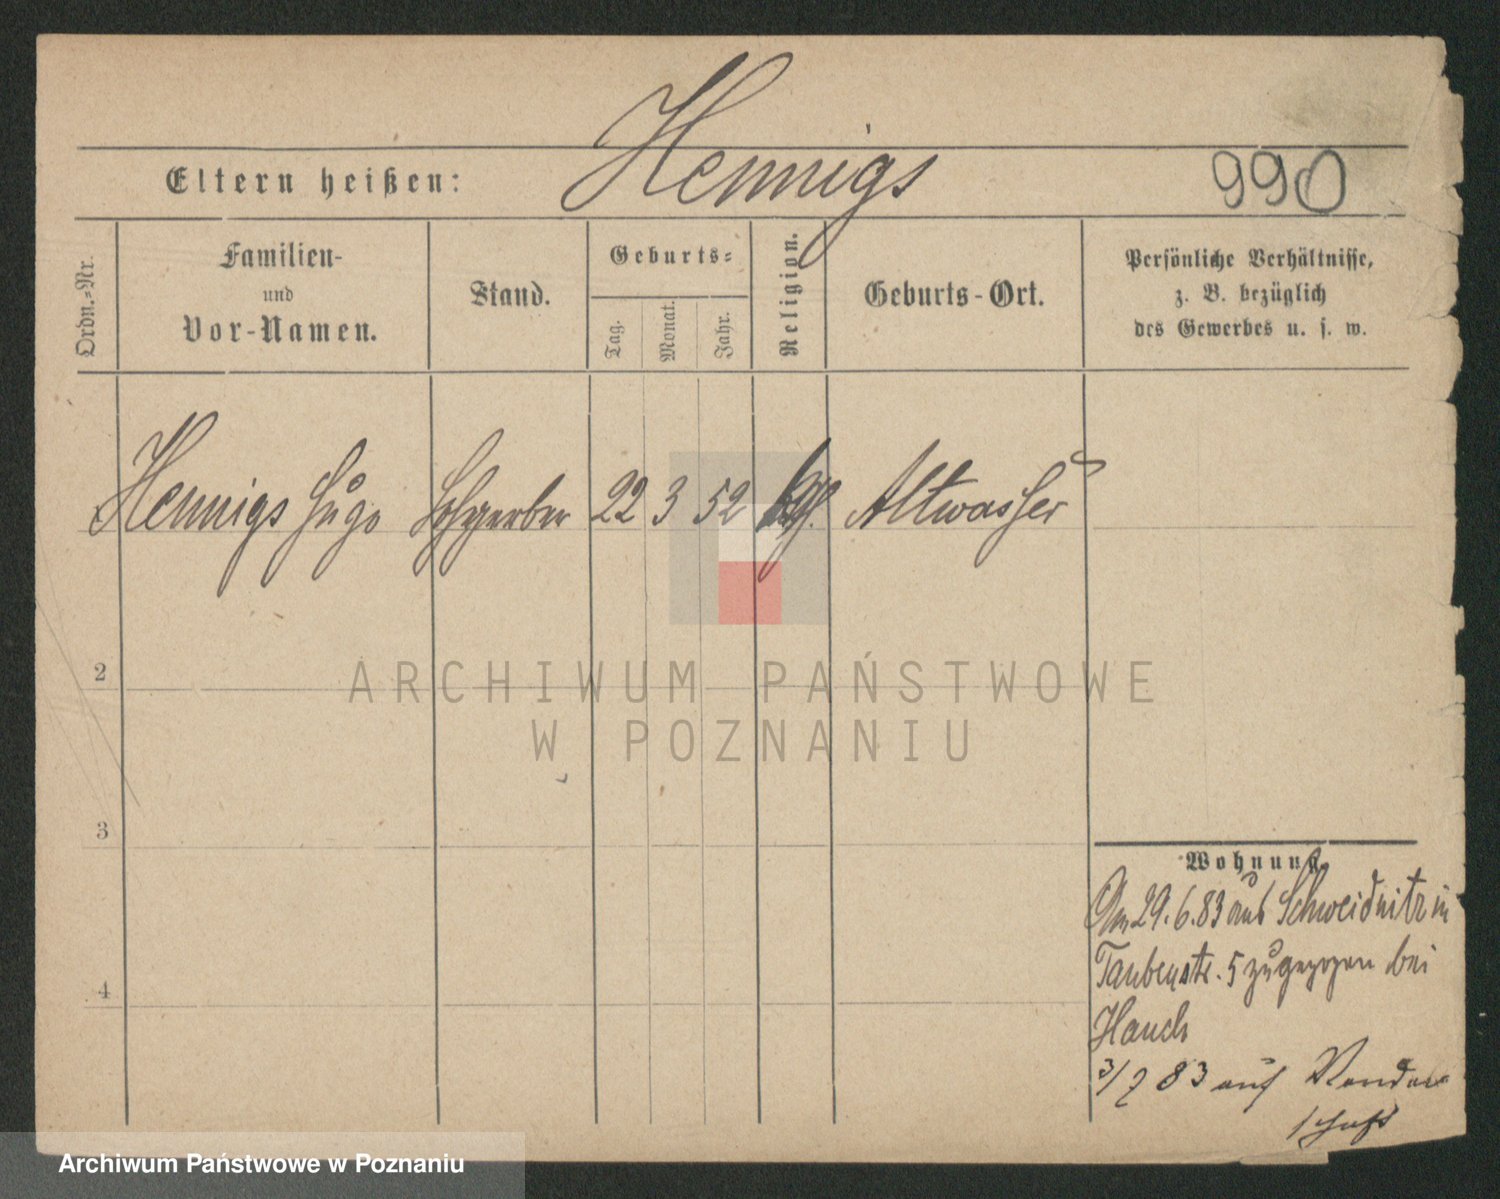 Hennigs
Eltern heißen:
990
Ordn.=Nr.
Familien-
und
Vor-Namen.
Stand.
Geburts=
Tag.
Monat.
Jahr.
Religion.
Geburts-Ort.
Persönliche Verhältnisse,
z. B. bezüglich
des Gewerbes u. s. w.
Hennigs Hugo Lohgerber 22 3 52 Altwasser
2
ARCHIWUM PAŃSTWOWE
W POZNANIU
3
Wohnung
Am 29. 6. 83 aus Schweidnitz in
4
Taubenstr. 5 zugezogen bei
Hauch
3/7 83 auf Wander
schaft
Archiwum Państwowe w Poznaniu